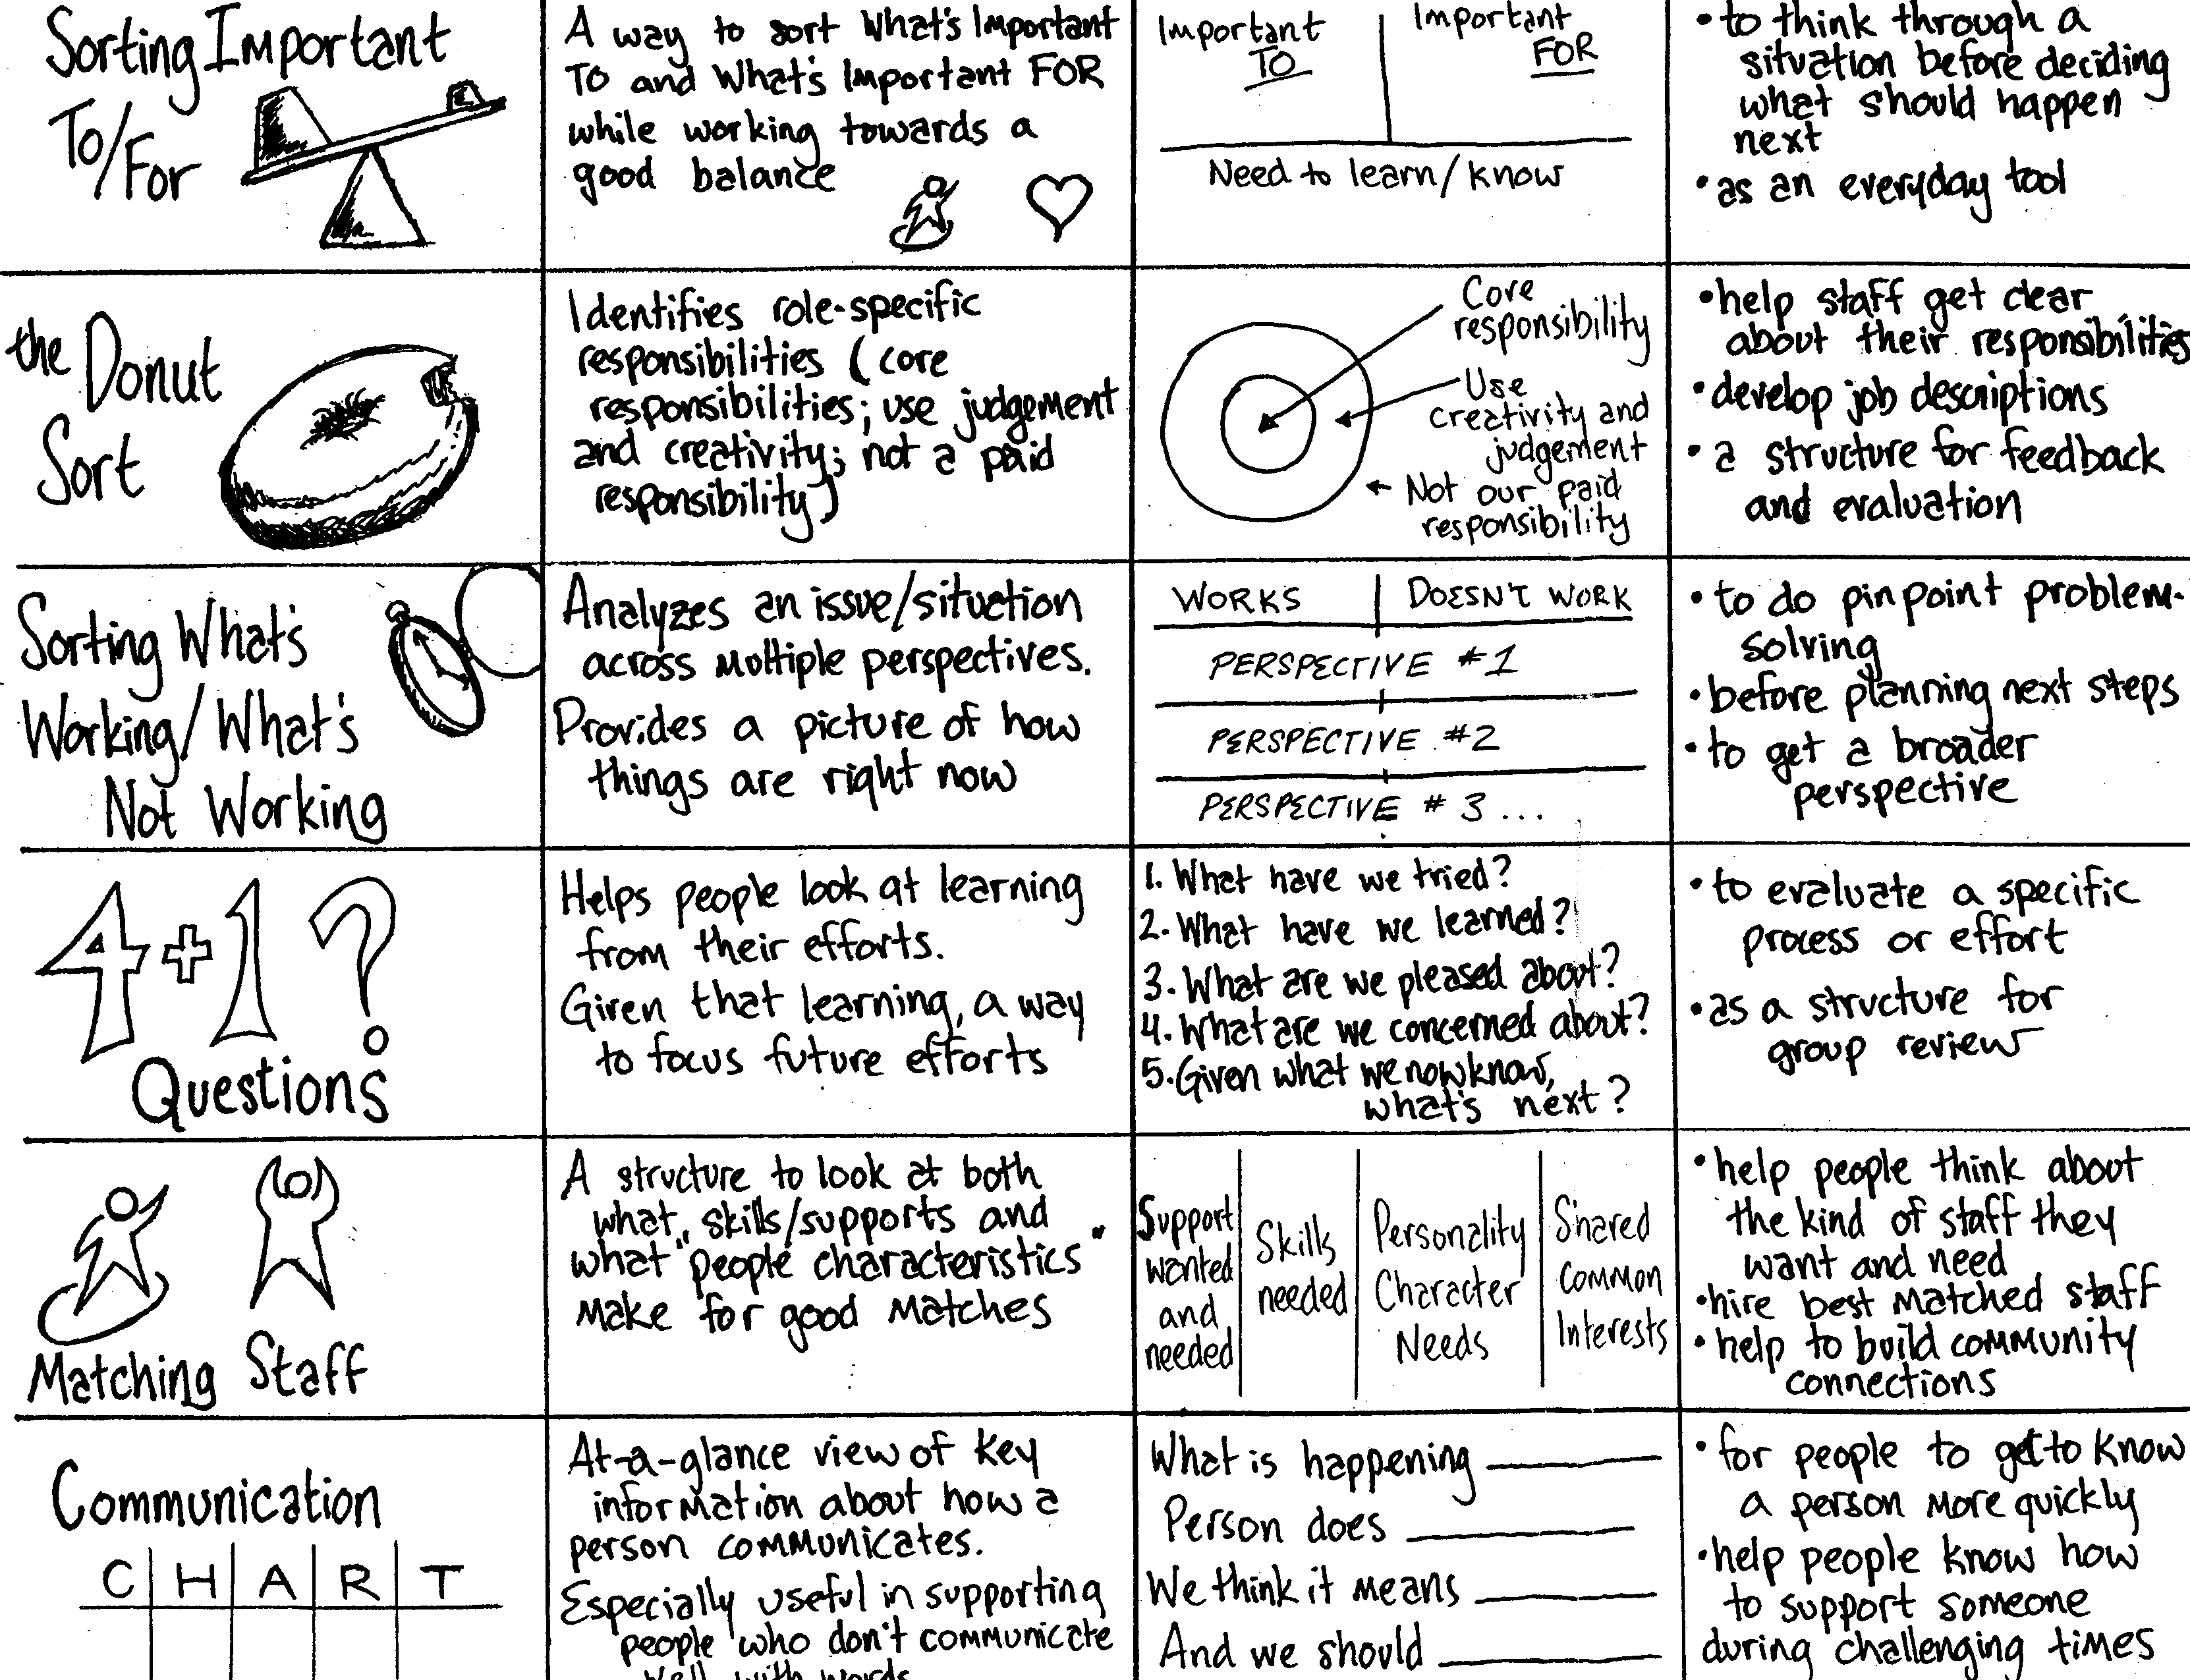 Sorting Important
To/For
A way to sort What's Important
To and What's Important FOR
while working towards a
good balance
Important
TO
Important
FOR
Need to learn/know
• to think through a
situation before deciding
what should happen
next
• as an everyday tool
the Donut
Sort
Identifies role-specific
responsibilities (core
responsibilities; use judgement
and creativity; not a paid
responsibility)
Core
responsibility
Use
creativity and
judgement
Not our paid
responsibility
• help staff get clear
about their responsibilities
• develop job descriptions
• a structure for feedback
and evaluation
Sorting What's
Working/What's
Not Working
Analyzes an issue/situation
across multiple perspectives.
Provides a picture of how
things are right now
WORKS
DOESN'T WORK
PERSPECTIVE #1
PERSPECTIVE #2
PERSPECTIVE #3...
• to do pinpoint problem-
solving
• before planning next steps
• to get a broader
perspective
4+1?
Questions
Helps people look at learning
from their efforts.
Given that learning, a way
to focus future efforts
1. What have we tried?
2. What have we learned?
3. What are we pleased about?
4. What are we concerned about?
5. Given what we now know,
what's next?
• to evaluate a specific
process or effort
• as a structure for
group review
Matching Staff
A structure to look at both
what skills/supports and
what "people characteristics"
make for good matches
Support
wanted
and
needed
Skills
needed
Personality
Character
Needs
Shared
Common
Interests
• help people think about
the kind of staff they
want and need
• hire best matched staff
• help to build community
connections
Communication
C H A R T
At-a-glance view of key
information about how a
person communicates.
Especially useful in supporting
people who don't communicate
well with words
What is happening
Person does
We think it means
And we should
• for people to get to know
a person more quickly
• help people know how
to support someone
during challenging times